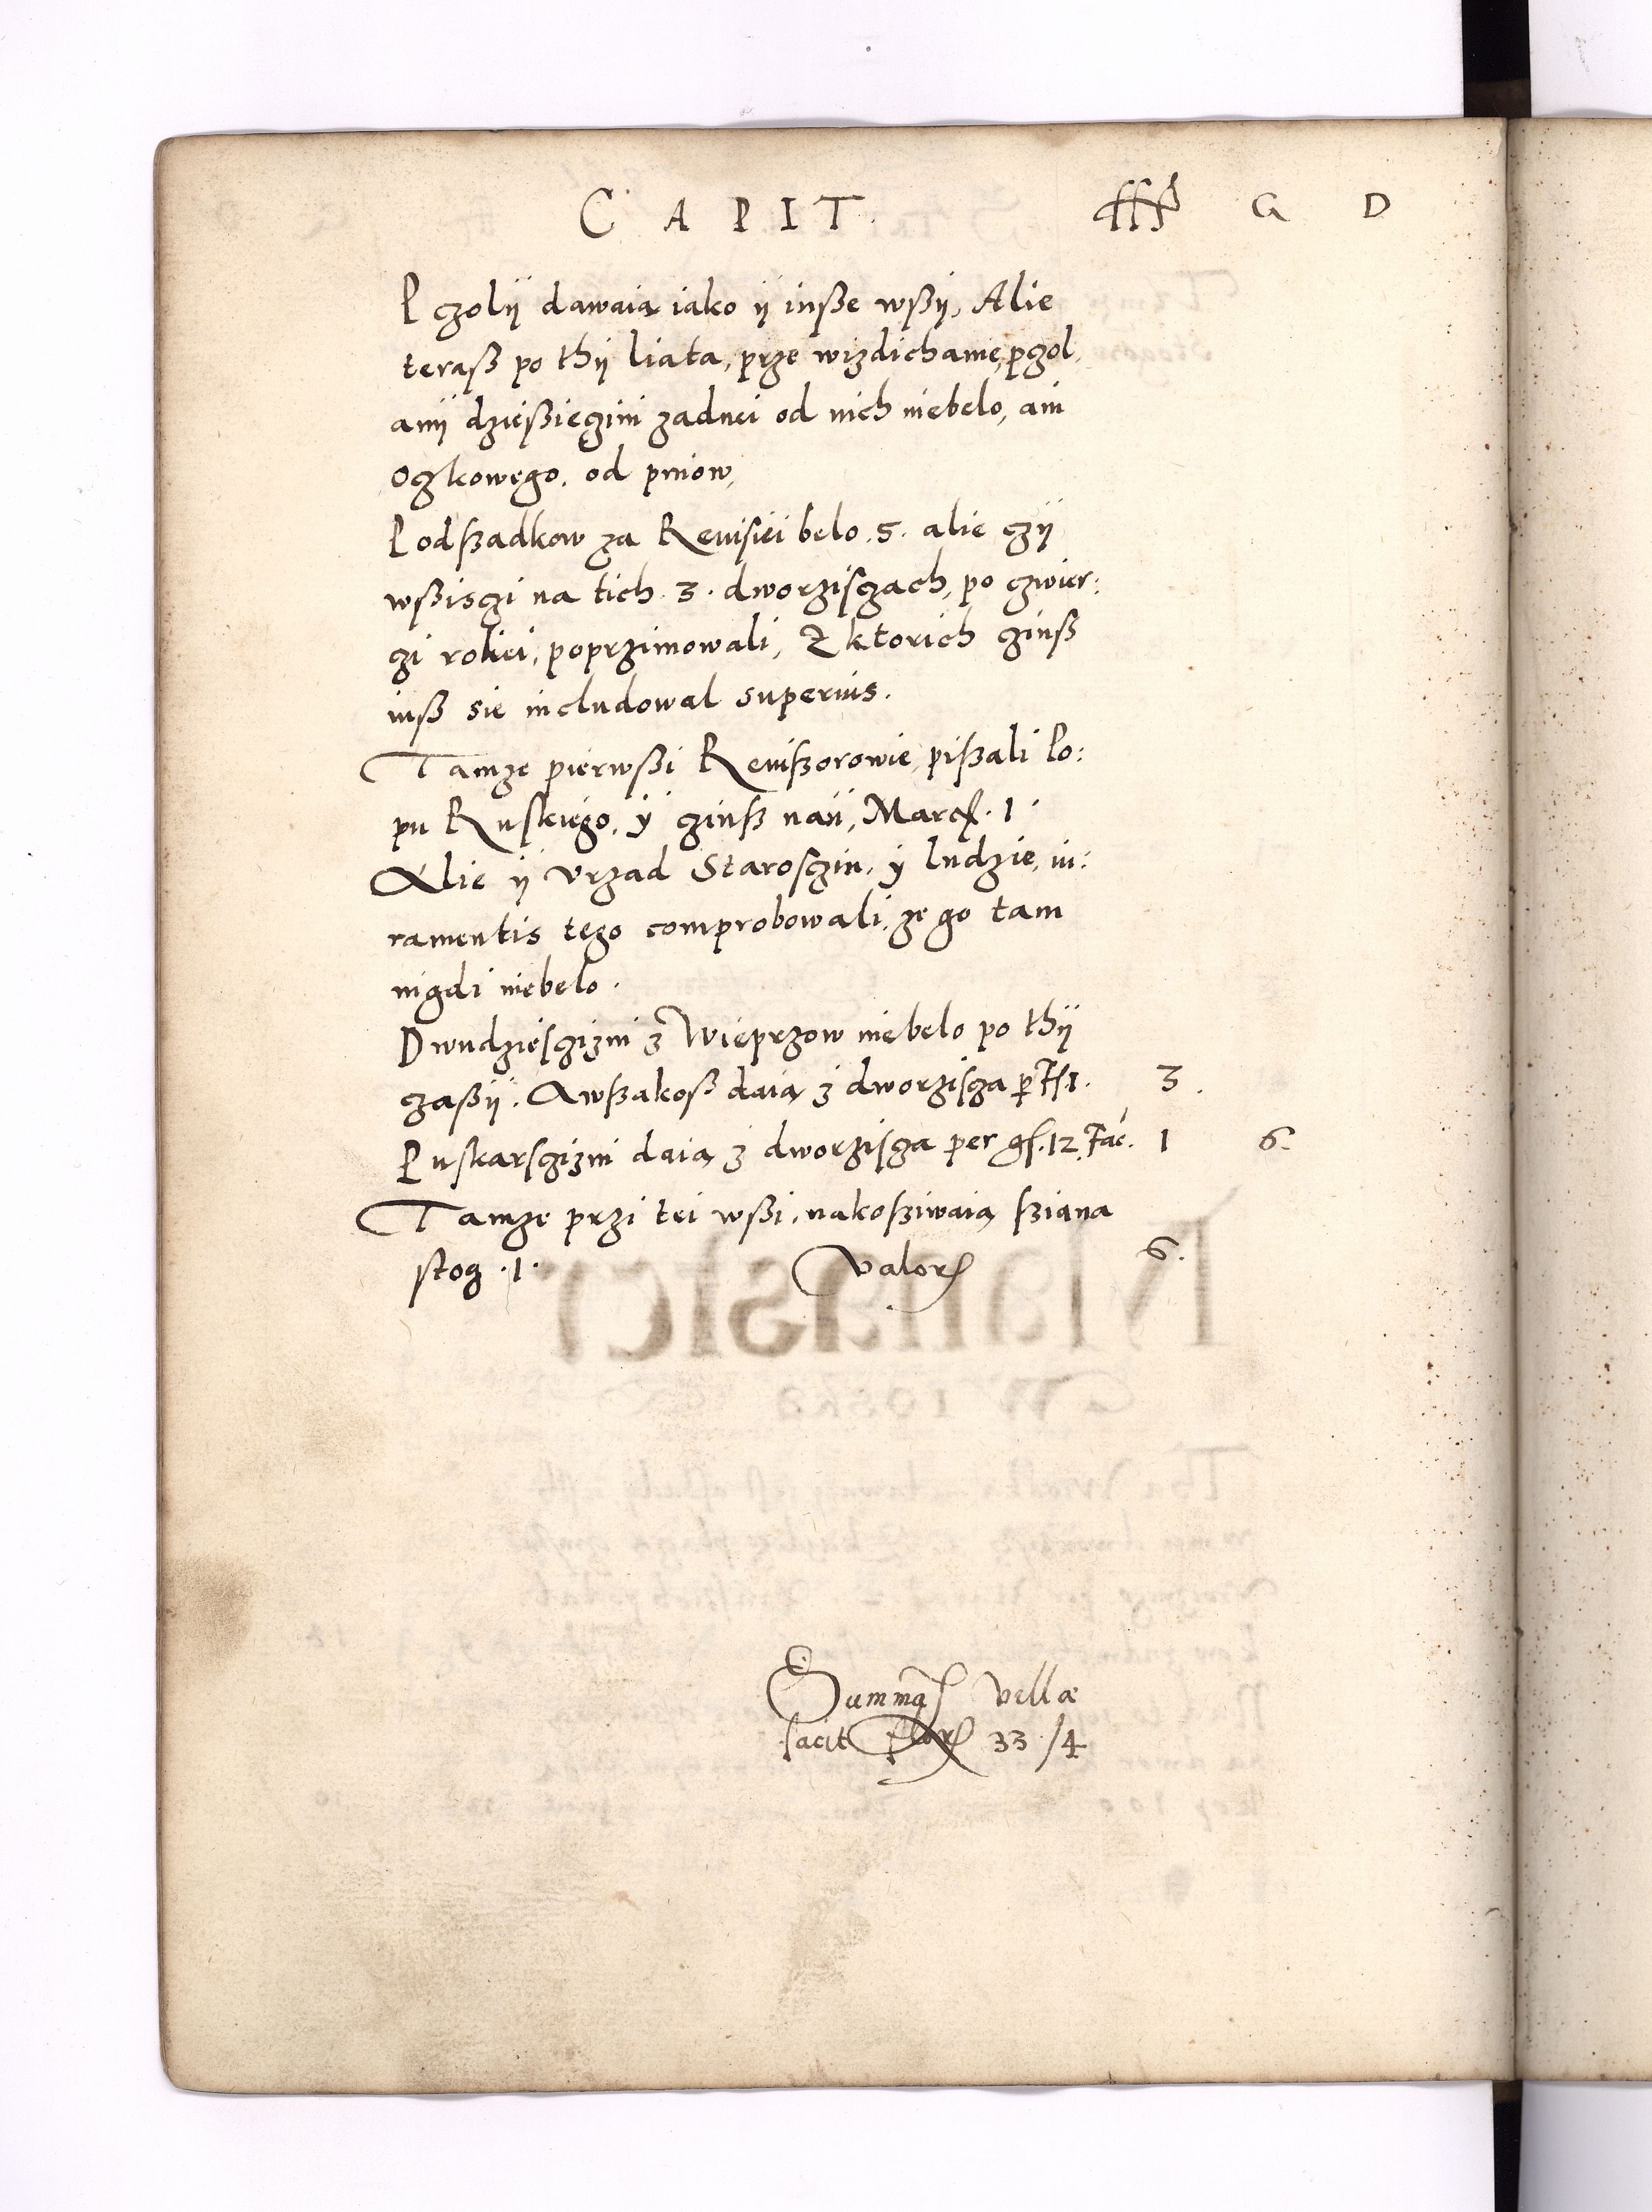 CAPIT. fff G D
Pczolÿ dawaią iako ÿ insße wsßÿ, Alie
terasß po thÿ liata, prze wizdichanie, pczol,
anÿ dziesßieczini zadnei od nich niebelo, ani
oczkowego. od pniow,
Podsżadkow za Reuisiei belo .5. alie czÿ
wsßisczi na tich .3. dworzisczach, po czwier:
czi roliei, poprzimowali, Z ktorich czinsß
iusß sie includowal superius.
Tamze pierwsßi Reuisżorowie, pisżali Po:
pu Ruskiego, ÿ czinsż nań, Marcę. 1.
Alie ÿ Vrzad Starosczin, ÿ ludzie, iu:
ramentis tego comprobowali, ze go tam
nigdi niebelo.
Dwudziesczizni z Wieprzow niebelo po thÿ
czasßÿ. Awsżakosß daią z dworziscza 1. 3.
Puskarsczizni daią z dworziscza per gr. 12. Fac. 1 6.
Tamze przi tei wsßi, nakosżiwaią sżiana
stog .1. Valor 6.
Summa Villæ
facit flor 33 /4